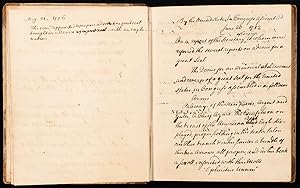 Aug. 20, 1776
The com^ee appointed to prepare a device for a great seal
brought in the same as
By the United States in Congress Assembled
June 20, 1782
On a report of the Secretary, to whom were
referred the several reports on a device for a
great seal
The Device for an Armorial atchievement
and reverse of a great seal for the United
States in Congress Assembled is as follows
Arms
Paleways of thirteen pieces Argent and
Gules, a Chief, Azure. The Escutcheon on
the breast of the American bald Eagle dis-
played, proper, holding in his dexter talon
an Olive branch, and in his sinister a bundle of
thirteen arrows, all proper, and in his beak
a scroll, inscribed with this Motto
"E pluribus unum"